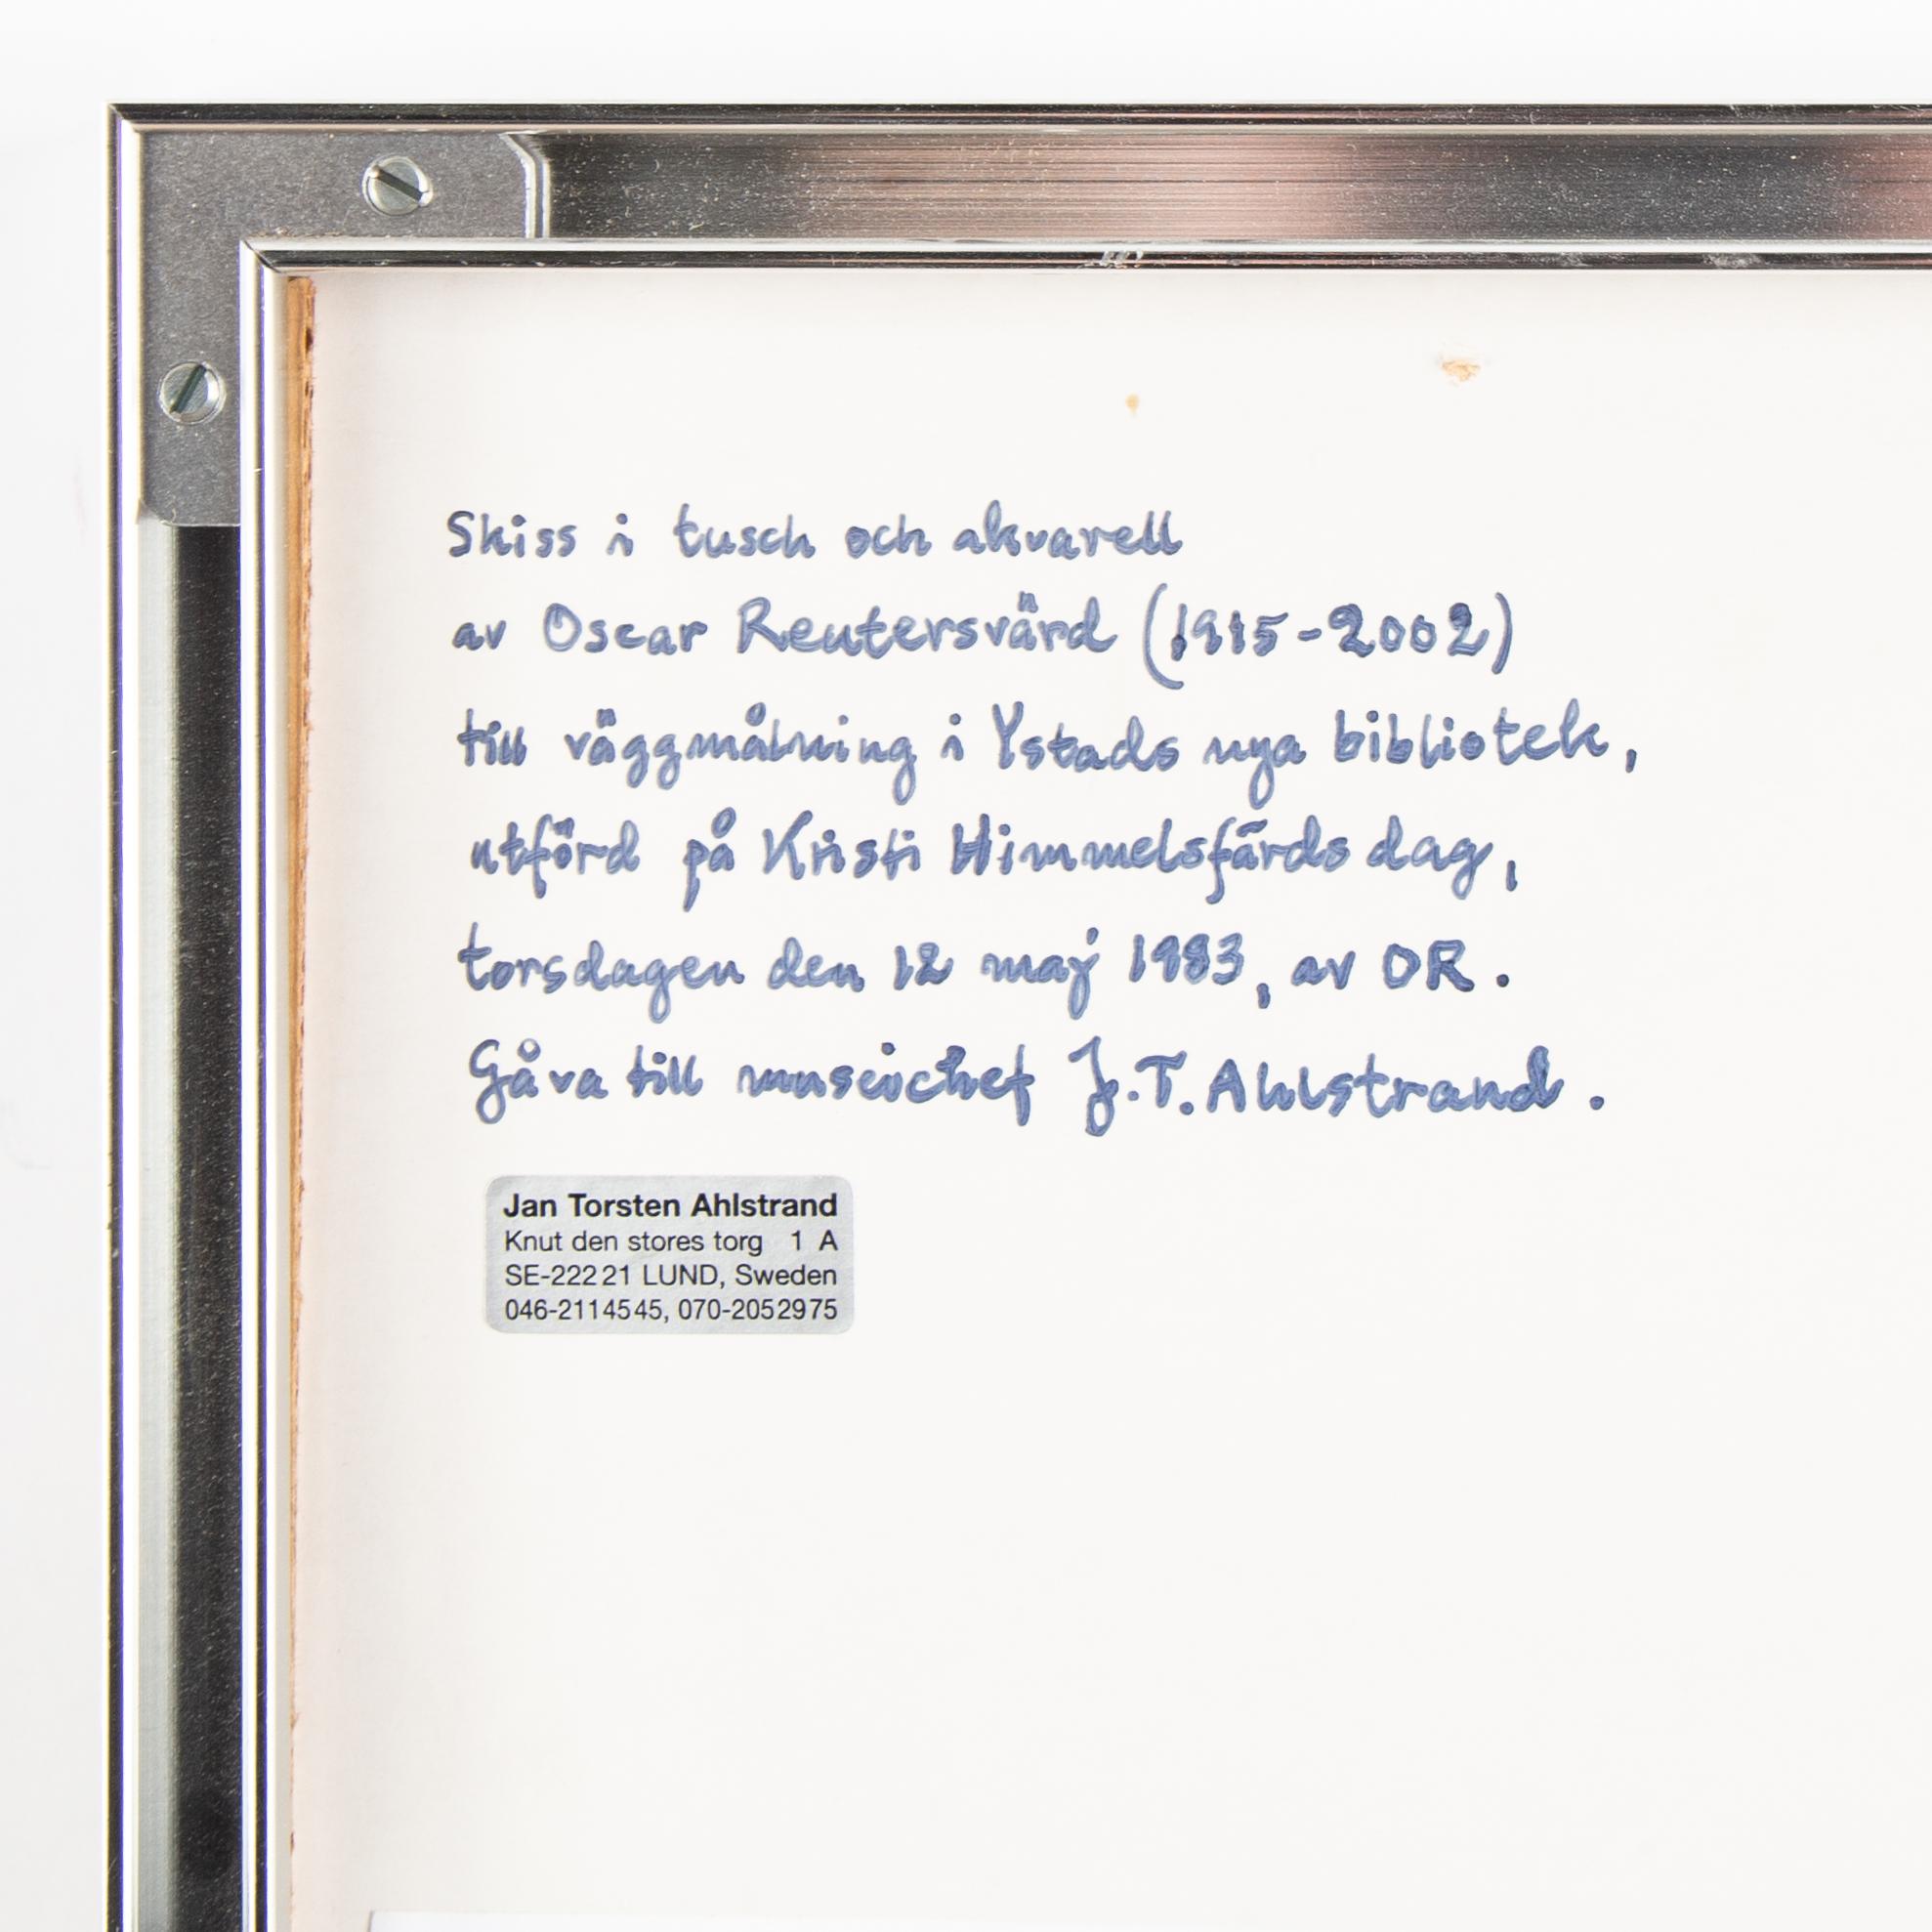 Skiss i tusch och akvarell
av Oscar Reutersvärd (1915-2002)
till väggmålning i Ystads nya bibliotek,
utförd på Kristi Himmelsfärdsdag,
torsdagen den 12 maj 1983, av OR.
Gåva till museichef J.T. Ahlstrand.
Jan Torsten Ahlstrand
Knut den stores torg 1 A
SE-222 21 LUND, Sweden
046-211 45 45, 070-205 29 75